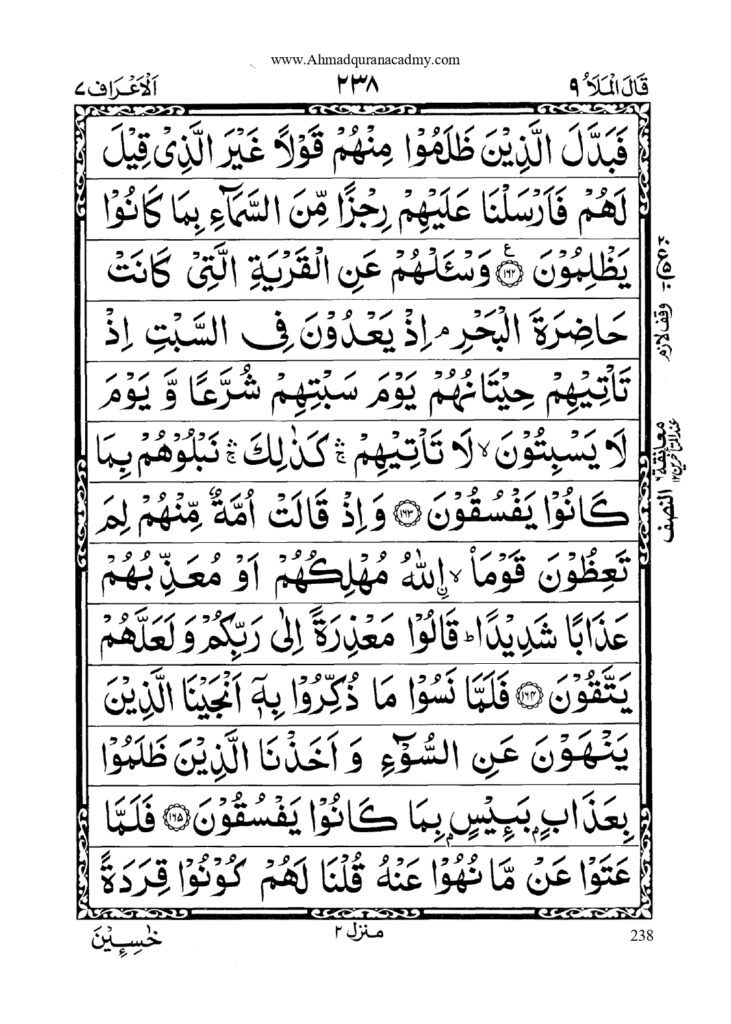 www.Ahmadquranacadmy.com
قَالَ الْمَلَاُ ۹
۲۳۸
اَلْاَعْرَاف ۷
فَبَدَّلَ الَّذِيْنَ ظَلَمُوْا مِنْهُمْ قَوْلًا غَيْرَ الَّذِىْ قِيْلَ
لَهُمْ فَاَرْسَلْنَا عَلَيْهِمْ رِجْزًا مِّنَ السَّمَآءِ بِمَا كَانُوْا
يَظْلِمُوْنَ ۱۶۲ ع وَسْئَلْهُمْ عَنِ الْقَرْيَةِ الَّتِىْ كَانَتْ
حَاضِرَةَ الْبَحْرِ ۘ اِذْ يَعْدُوْنَ فِى السَّبْتِ اِذْ
تَاْتِيْهِمْ حِيْتَانُهُمْ يَوْمَ سَبْتِهِمْ شُرَّعًا وَّ يَوْمَ
لَا يَسْبِتُوْنَ ۙ لَا تَاْتِيْهِمْ ۛ كَذٰلِكَ ۛ نَبْلُوْهُمْ بِمَا
كَانُوْا يَفْسُقُوْنَ ۱۶۳ وَاِذْ قَالَتْ اُمَّةٌ مِّنْهُمْ لِمَ
تَعِظُوْنَ قَوْمَاۨ ۙ اللّٰهُ مُهْلِكُهُمْ اَوْ مُعَذِّبُهُمْ
عَذَابًا شَدِيْدًا ؕ قَالُوْا مَعْذِرَةً اِلٰى رَبِّكُمْ وَلَعَلَّهُمْ
يَتَّقُوْنَ ۱۶۴ فَلَمَّا نَسُوْا مَا ذُكِّرُوْا بِهٖۤ اَنْجَيْنَا الَّذِيْنَ
يَنْهَوْنَ عَنِ السُّوْٓءِ وَ اَخَذْنَا الَّذِيْنَ ظَلَمُوْا
بِعَذَابٍۭ بَئِيْسٍۭ بِمَا كَانُوْا يَفْسُقُوْنَ ۱۶۵ فَلَمَّا
عَتَوْا عَنْ مَّا نُهُوْا عَنْهُ قُلْنَا لَهُمْ كُوْنُوْا قِرَدَةً
وقف لازم
معانقة
النصف
خٰسِـِٕيْنَ
منزل ۲
238